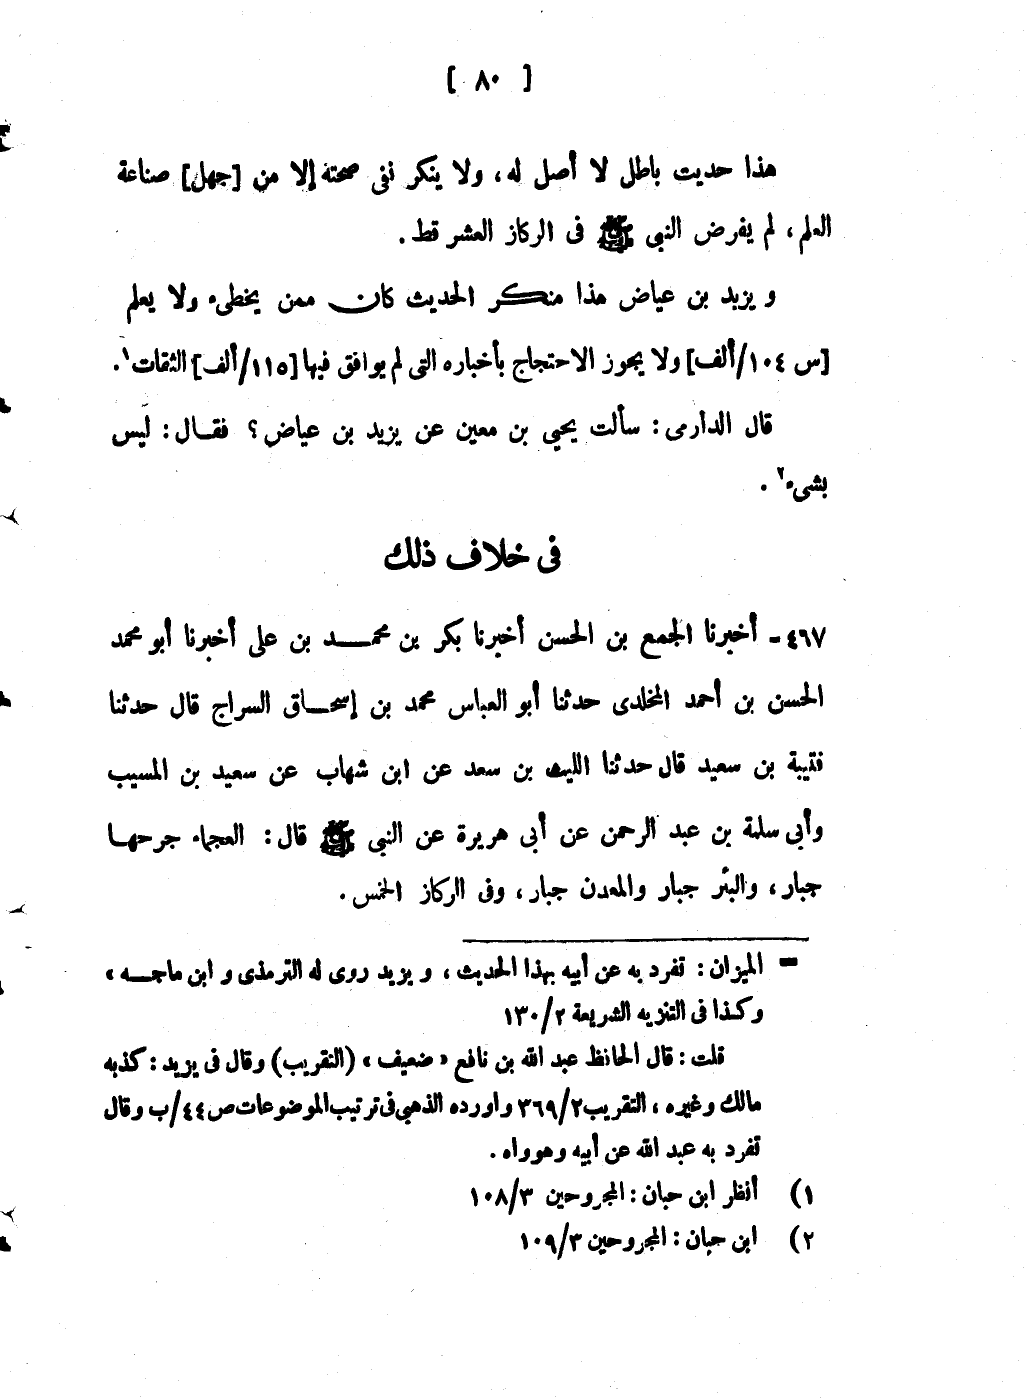 [ ٨٠ ]
هذا حديث باطل لا أصل له، ولا ينكر نفى صحته إلا من [جهل] صناعة
العلم، لم يفرض النبى ﷺ فى الركاز العشر قط .
و يزيد بن عياض هذا منكر الحديث كان ممن يخطىء ولا يعلم
[س ١٠٤/ألف] ولا يجوز الاحتجاج بأخباره التى لم يوافق فيها [١١٥/ألف] الثقات١.
قال الدارمى : سألت يحيى بن معين عن يزيد بن عياض ؟ فقال : ليس
بشىء٢ .
فى خلاف ذلك
٤٦٧- أخبرنا الجمع بن الحسن أخبرنا بكر بن محمد بن على أخبرنا أبو محمد
الحسن بن أحمد المخلدى حدثنا أبو العباس محمد بن إسحاق السراج قال حدثنا
قتيبة بن سعيد قال حدثنا الليث بن سعد عن ابن شهاب عن سعيد بن المسيب
وأبى سلمة بن عبد الرحمن عن أبى هريرة عن النبى ﷺ قال : العجماء جرحها
جبار، والبئر جبار والمعدن جبار، وفى الركاز الخمس .
= الميزان : تفرد به عن أبيه بهذا الحديث ، و يزيد روى له الترمذى و ابن ماجه ،
وكذا فى التنزيه الشريعة ١٣٠/٢
قلت : قال الحافظ عبد الله بن نافع « ضعيف » (التقريب) وقال فى يزيد : كذبه
مالك وغيره ، التقريب ٣٦٩/٢ و اورده الذهبى فى ترتيب الموضوعات ص ٤٤/ب وقال
تفرد به عبد الله عن أبيه وهو واه .
١) أنظر ابن حبان : المجروحين ١٠٨/٣
٢) ابن حبان : المجروحين ١٠٩/٣